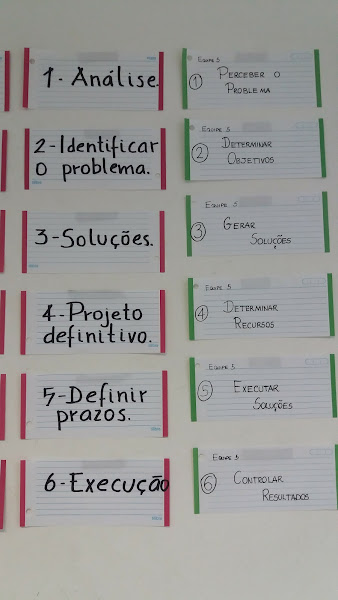 1-Análise.
2-Identificar
O problema.
3-Soluções.
4-Projeto
definitivo.
5-Definir
prazos.
6-Execução
Equipe 5
1 Perceber o
Problema
Equipe 5
2 Determinar
Objetivos
Equipe 5
3 Gerar
Soluções
Equipe 5
4 Determinar
Recursos
Equipe 5
5 Executar
Soluções
Equipe 5
6 Controlar
Resultados